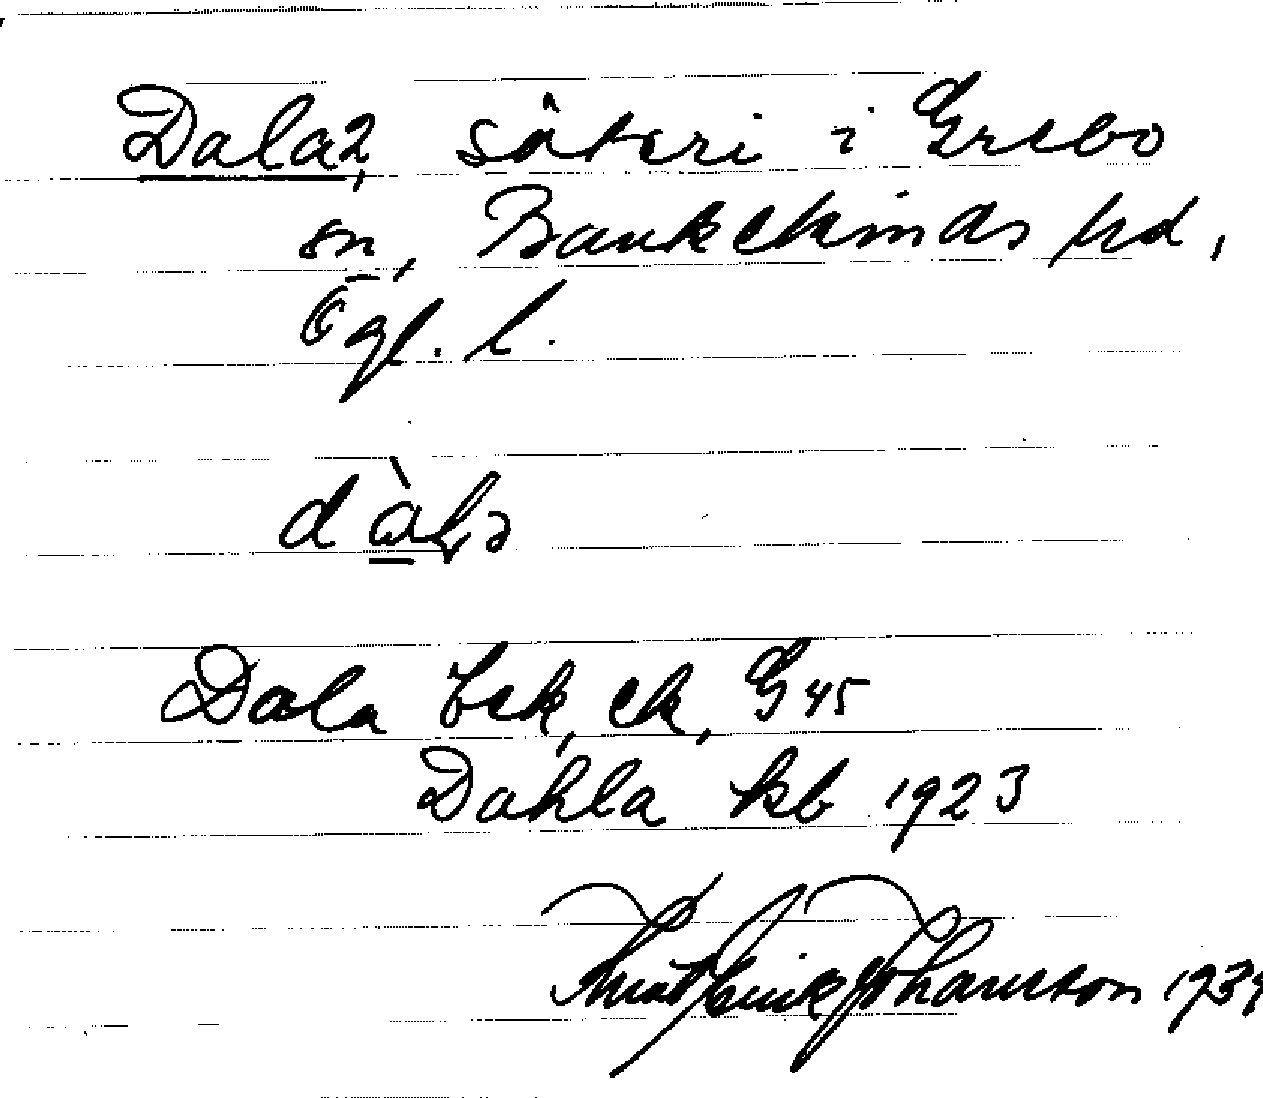 Dala2, säteri i Grebo
sn, Bankekinds hd,
Ögl. l.
dàla
Dala bsk, ek, G 45
Dahla kb 1923
Knut Erik Johansson 1934